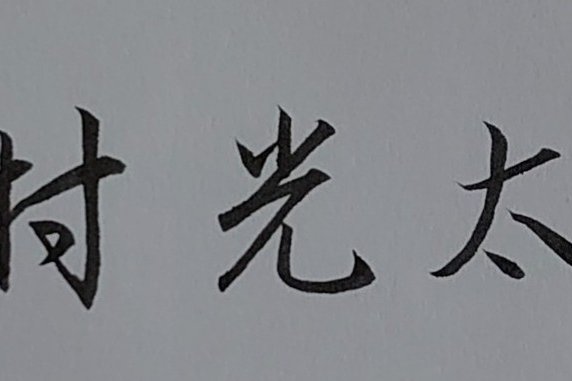 村光太